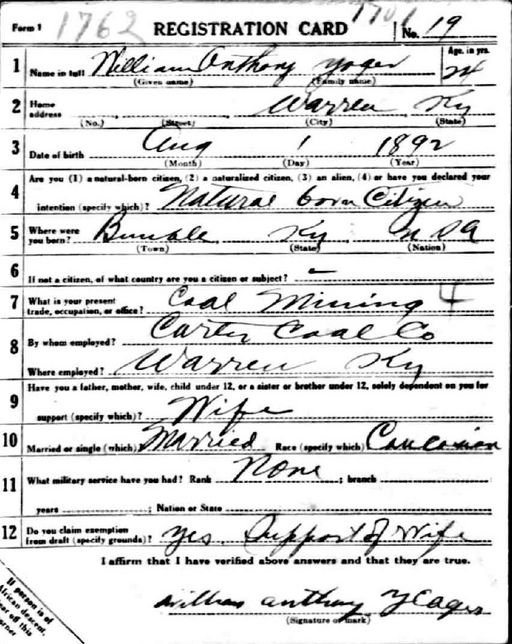 Form 1 1762 REGISTRATION CARD 1701 No. 19
1 Name in full William Anthony Yager Age, in yrs. 24
(Given name) (Family name)
2 Home address Warren Ky
(No.) (Street) (City) (State)
3 Date of birth Aug 1 1892
(Month) (Day) (Year)
4 Are you (1) a natural-born citizen, (2) a naturalized citizen, (3) an alien, (4) or have you declared your
intention (specify which)? Natural born Citizen
5 Where were you born? Bumble Ky USA
(Town) (State) (Nation)
6 If not a citizen, of what country are you a citizen or subject? –
7 What is your present trade, occupation, or office? Coal Mining 4
8 By whom employed? Carter Coal Co
Where employed? Warren Ky
9 Have you a father, mother, wife, child under 12, or a sister or brother under 12, solely dependent on you for
support (specify which)? Wife
10 Married or single (which) Married Race (specify which) Caucasian
11 What military service have you had? Rank None ; branch
years ; Nation or State
12 Do you claim exemption from draft (specify grounds)? Yes. Support of Wife
I affirm that I have verified above answers and that they are true.
William anthony Yeager
(Signature or mark)
If person is of
African descent,